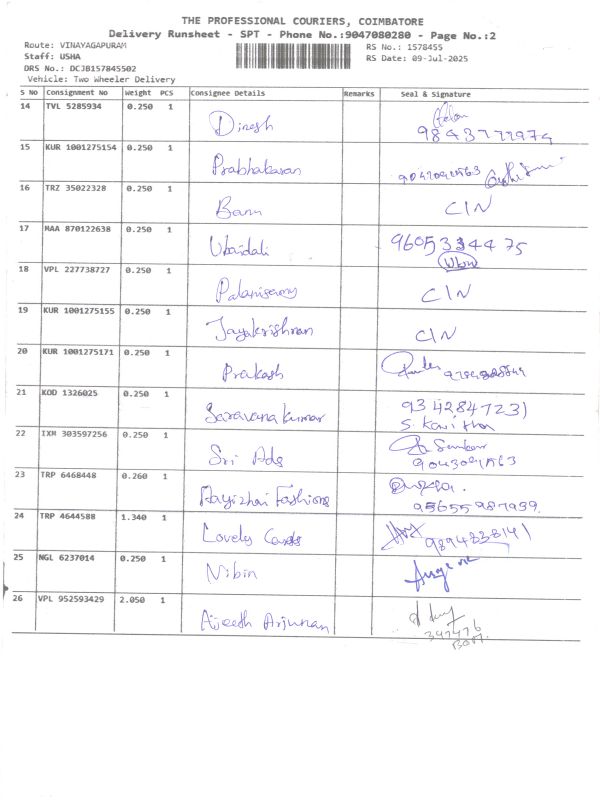 THE PROFESSIONAL COURIERS, COIMBATORE
Delivery Runsheet - SPT - Phone No.:9047080280 - Page No.:2
Route: VINAYAGAPURAM RS No.: 1578455
Staff: USHA RS Date: 09-Jul-2025
DRS No.: DCJB157845502
Vehicle: Two Wheeler Delivery
S No Consignment No Weight PCS Consignee Details Remarks Seal & Signature
14 TVL 5285934 0.250 1 Dinesh
15 KUR 1001275154 0.250 1 Prabhakaran
16 TRZ 35022328 0.250 1 Banu CIN
17 MAA 870122638 0.250 1 Ubaidali 9605334475
18 VPL 227738727 0.250 1 Palanisamy CIN
19 KUR 1001275155 0.250 1 Jayakrishnan CIN
20 KUR 1001275171 0.250 1 Prakash
21 KOD 1326025 0.250 1 Saravana kumar 9342847231
S. Kavitha
22 IXM 303597256 0.250 1 Sri Ads
23 TRP 6468448 0.260 1 Fashions
24 TRP 4644588 1.340 1 Lovely Cards
25 NGL 6237014 0.250 1 Nibin
26 VPL 952593429 2.050 1 Ajeeth Arjunan